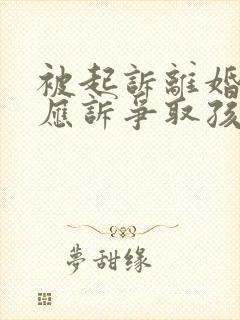 被起訴離婚
應訴爭取孩
夢甜缘